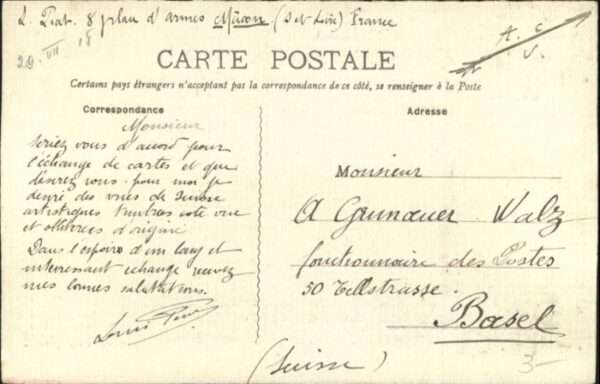 L. Piat. 8 plau d'armes Mâcon (S et Loire) France
20 VII 18
A. C.
V.
CARTE POSTALE
Certains pays étrangers n'acceptant pas la correspondance de ce côté, se renseigner à la Poste
Correspondance
Adresse
Monsieur
Seriez vous d'accord pour
l'échange de cartes et que
désirez vous. pour moi je
désire des vues de Suisse
artistiques timbres côté vue
et
Dans l'espoire d'un long et
interessant échange recevez
mes bonnes salutations.
Louis
Monsieur
A Grunauer Walz
fonctionnaire des Postes
50 Tellstrasse.
Basel
(Suisse)
3-